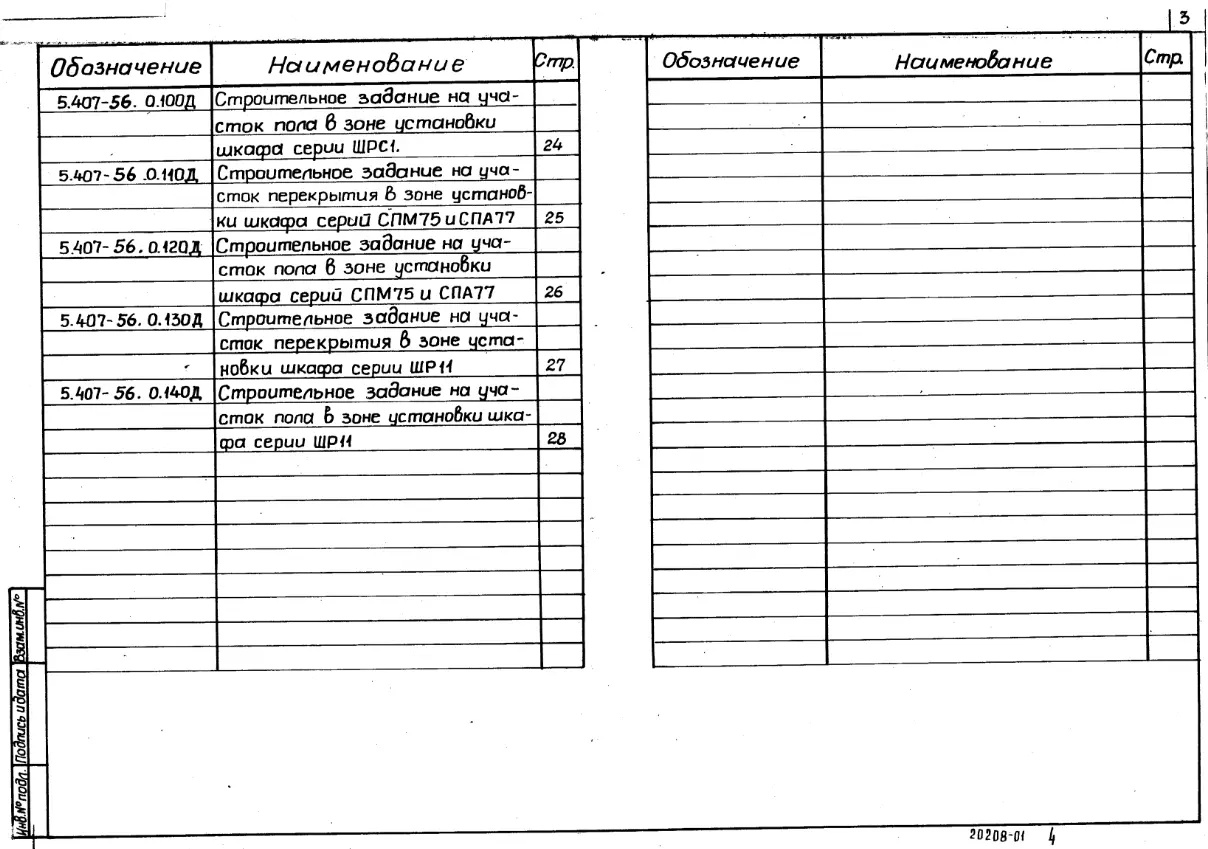 3
Обозначение Наименование Стр.
5.407-56. 0.100Д Строительное задание на уча-
сток пола в зоне установки
шкафа серии ШРС1. 24
5.407-56.0.110Д Строительное задание на уча-
сток перекрытия в зоне установ-
ки шкафа серий СПМ75 и СПА77 25
5.407-56.0.120Д Строительное задание на уча-
сток пола в зоне установки
шкафа серий СПМ75 и СПА77 26
5.407-56.0.130Д Строительное задание на уча-
сток перекрытия в зоне уста-
новки шкафа серии ШР11 27
5.407-56. 0.140Д Строительное задание на уча-
сток пола в зоне установки шка-
фа серии ШР11 28
Обозначение Наименование Стр.
Взам.инв.№
Подпись и дата
Инв.№ подл.
20208-01 4